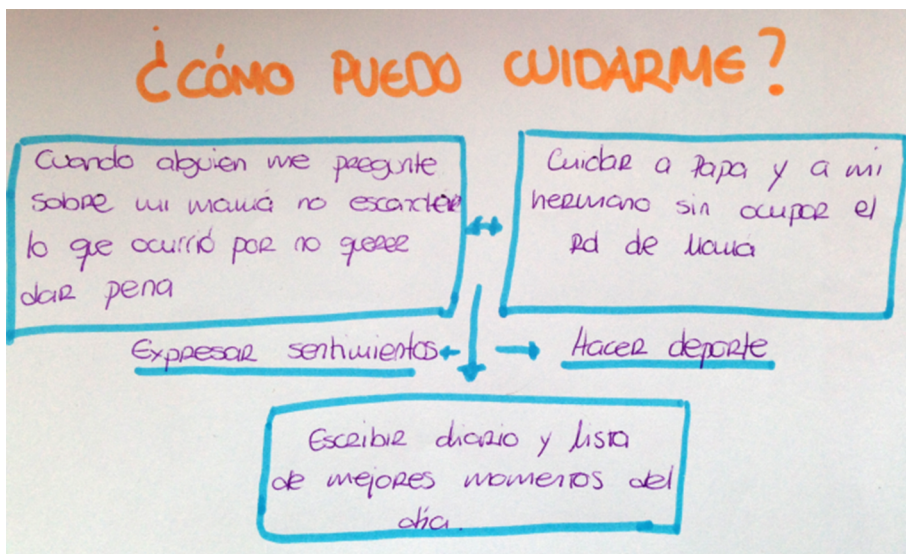 ¿CÓMO PUEDO CUIDARME?
Cuando alguien me pregunte
sobre mi mamá no esconder
lo que ocurrió por no querer
dar pena
Cuidar a Papa y a mi
hermano sin ocupar el
Rol de Mamá
Expresar sentimientos
Hacer deporte
Escribir diario y lista
de mejores momentos del
día.